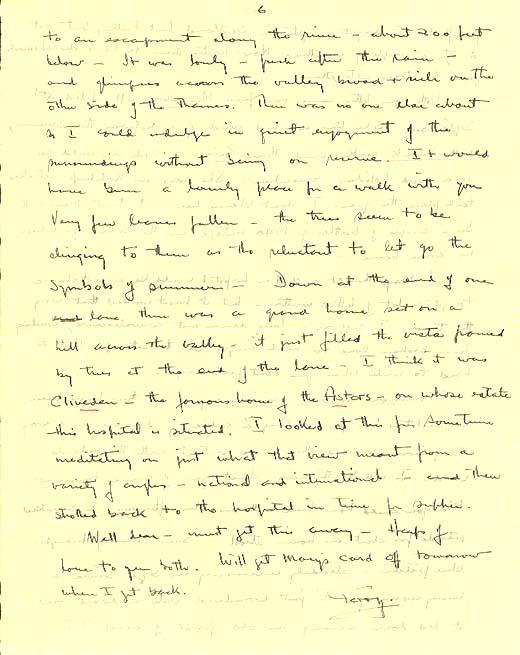 6
to an escarpment along the river - about 200 feet
below - It was lovely - fresh after the rain -
and glimpses across the valley broad & rich on the
other side of the Thames. There was no one else about
so I could indulge in quiet enjoyment of the
surroundings without being on review. It would
have been a lovely place for a walk with you
Very few leaves fallen - the trees seem to be
clinging to them as tho reluctant to let go the
symbols of summer - Down at the end of one
lane there was a grand home set on a
hill across the valley - it just filled the vista framed
by trees at the end of the lane - I think it was
Cliveden - the famous home of the Astors - on whose estate
this hospital is situated. I looked at this for sometime
meditating on just what that view meant from a
variety of angles - national and international - and then
strolled back to the hospital in time for supper.
Well dear - must get this away - Heaps of
love to you both. Will get Mary's card off tomorrow
when I get back.